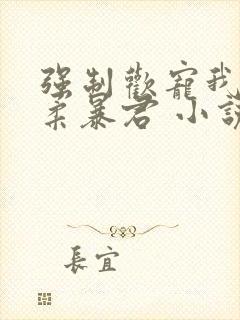 強制歡寵我
柔暴君 小說
長宜